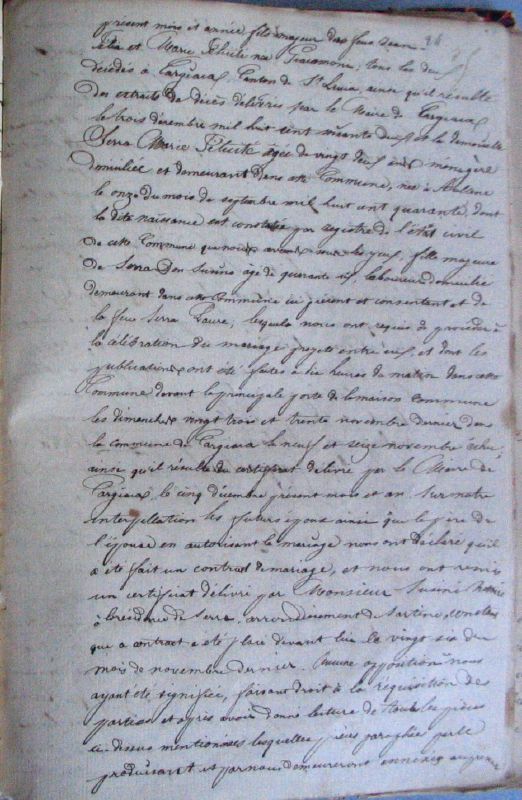 présent mois et année fils majeur des feus Jean
Félix et Marie Félicité née Giacomoni, tous les deux
décédés à Cargiaca, Canton de Ste Lucie, ainsi qu'il résulte
des extraits de décès délivrés par le Maire de Cargiaca
le trois décembre mil huit cent soixante deux et la demoiselle
Serra Marie Félicité âgée de vingt deux ans ménagère
domiciliée et demeurant dans cette Commune, née à Aullène
le onze du mois de septembre mil huit cent quarante, dont
la dite naissance est constatée par registre de l'état civil
de cette Commune que nous avons sous les yeux, fille majeure
de Serra Don âgé de quarante six, laboureur domicilié
demeurant dans cette Commune ici présent et consentant et de
la feue Serra Laure, lesquels nous ont requis de procéder à
la célébration du mariage projeté entre eux, et dont les
publications ont été faites à dix heures du matin dans cette
Commune devant la principale porte de la maison commune
les dimanches vingt trois et trente novembre dernier dans
la commune de Cargiaca le neuf et seize novembre échu,
ainsi qu'il résulte du certificat délivré par le Maire de
Cargiaca, le cinq décembre présent mois et an. Sur notre
interpellation les futurs époux ainsi que le père de
l'épouse en autorisant le mariage nous ont déclaré qu'il
a été fait un contrat de mariage, et nous ont remis
un certificat délivré par Monsieur Susini Notaire
à la résidence de Serra, arrondissement de Sartène, constatant
que ce contrat a été passé devant lui le vingt six du
mois de novembre dernier. Aucune opposition nous
ayant été signifiée, faisant droit à la réquisition des
parties et après avoir donné lecture de toutes les pièces
ci-dessus mentionnées lesquelles pièces paraphées par le
produisant et par nous demeureront annexées au présent